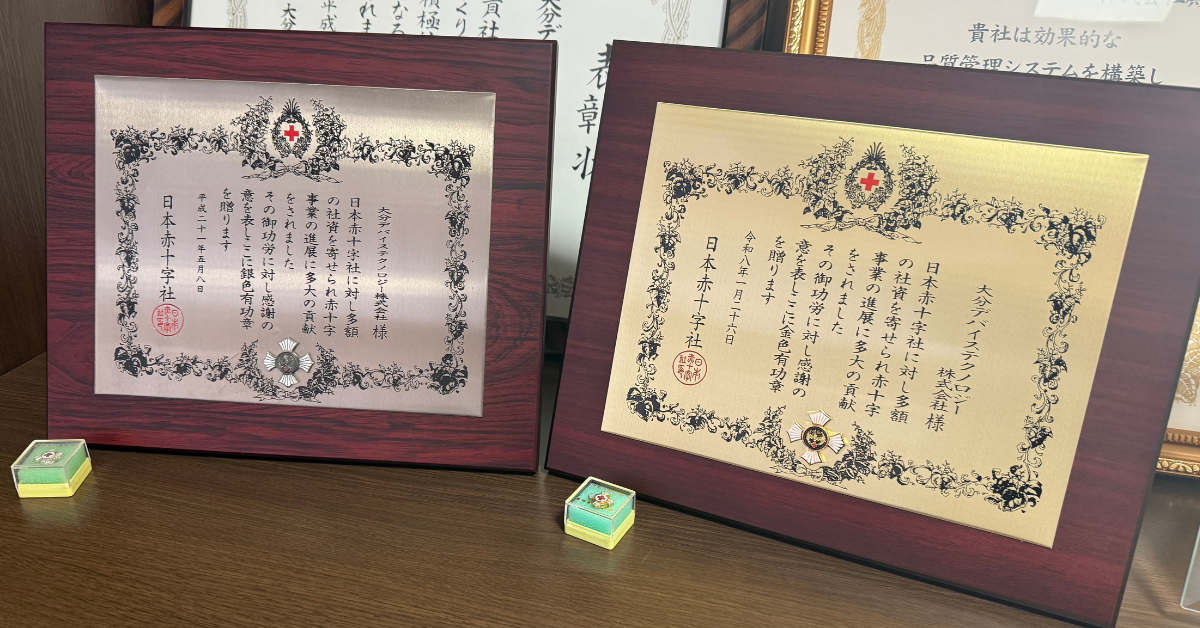 大分デバイステクノロジー株式会社 様
日本赤十字社に対し多額
の社資を寄せられ赤十字
事業の進展に多大の貢献
をされました
その御功労に対し感謝の
意を表しここに銀色有功章
を贈ります
平成二十一年五月八日
日本赤十字社
大分デバイステクノロジー
株式会社 様
日本赤十字社に対し多額
の社資を寄せられ赤十字
事業の進展に多大の貢献
をされました
その御功労に対し感謝の
意を表しここに金色有功章
を贈ります
令和八年一月二十六日
日本赤十字社
表彰状
大分デ
貴社
積極
平成
大分
貴社は効果的な
品質管理システムを構築し